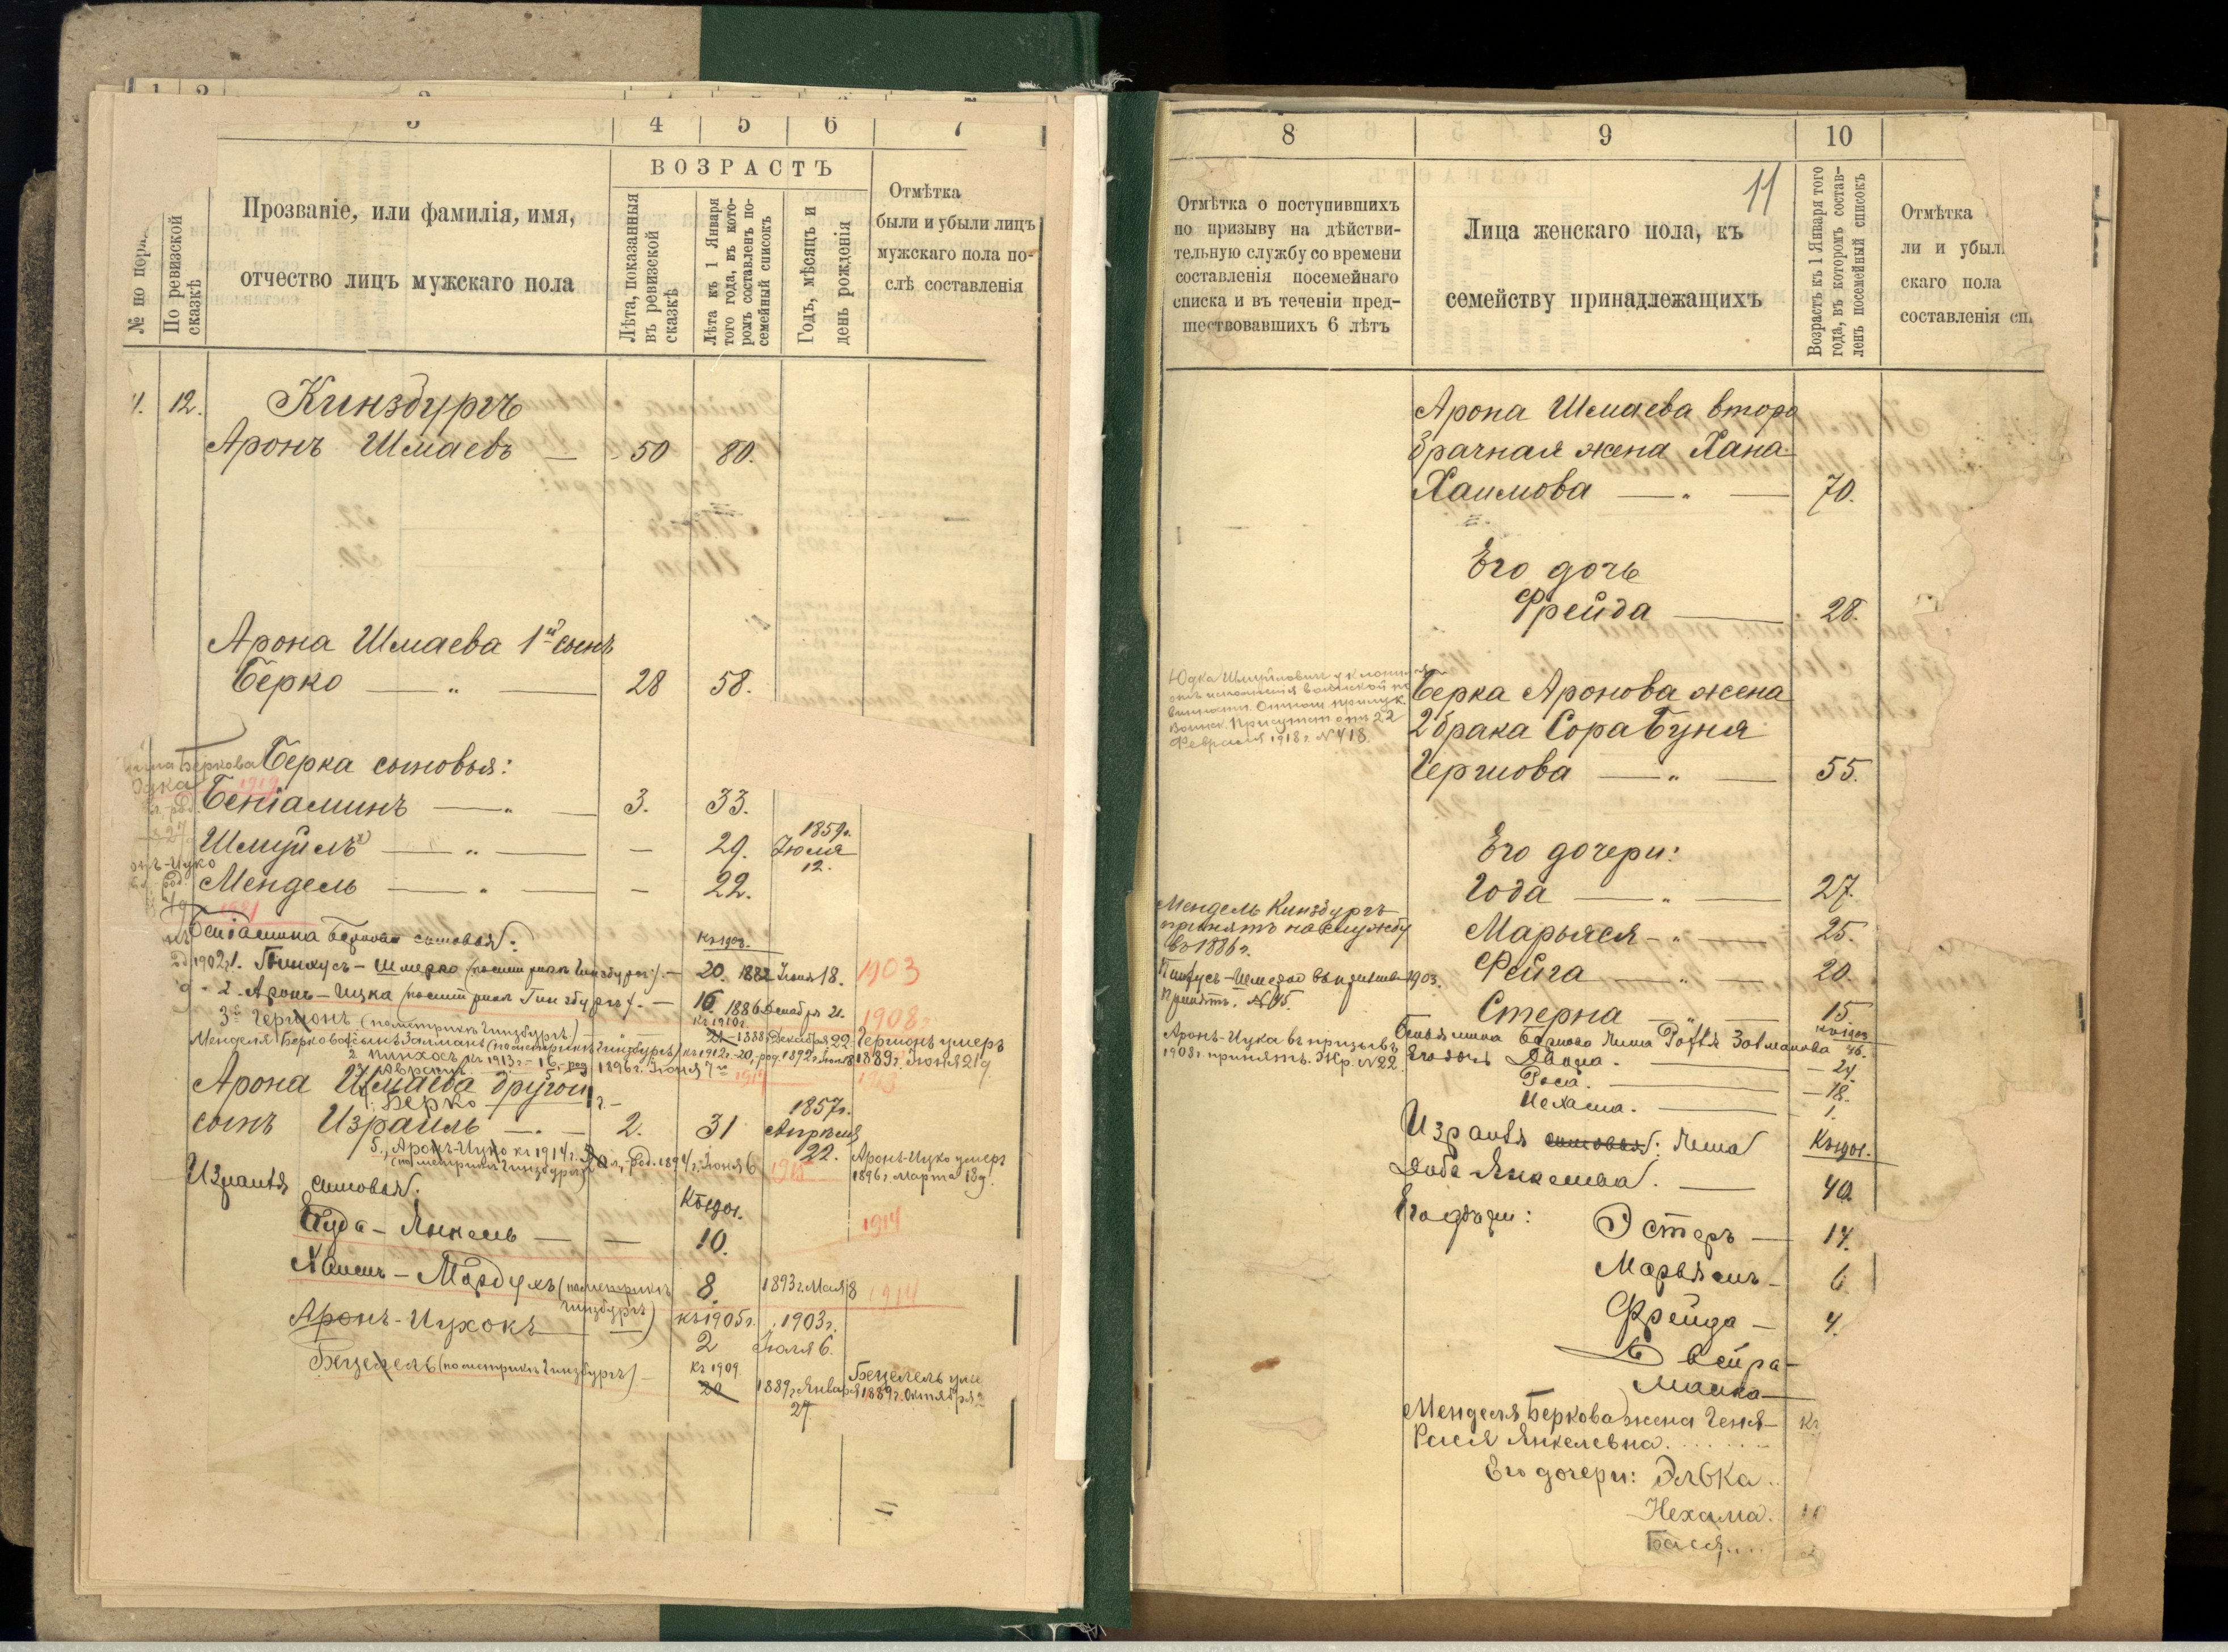 3 4 5 6 7
ВОЗРАСТЪ
№ по
По ревизской сказкѣ
Прозваніе, или фамилія, имя,
отчество лицъ мужскаго пола
Лѣта, показанныя въ ревизской сказкѣ
Лѣта къ 1 Января того года, въ которомъ составленъ посемейный списокъ
Годъ, мѣсяцъ и день рожденія
Отмѣтка
были и убыли лицъ
мужскаго пола по-
слѣ составленія
12. Кинзбургъ
Аронъ Шмаевъ — 50 80.
Арона Шмаева 1й сынъ
Берко — „ — 28 58.
Беркова Берка сыновья:
1919
Беніаминъ — „ — 3. 33.
Шмуйлъ — „ — — 29. 1859г. Іюля 12.
Мендель — „ — — 22.
1921
Беніамина Беркова сыновья: къ 1902.
1902 1. Пинхусъ-Шмерко (по метрикѣ Гинзбургъ) — 20. 1882 Іюня 18. 1903
2. Аронъ-Ицка (по метрикѣ Гинзбургъ). — 16 1886 Декабря 21. 1908г.
3й Гершонъ (по метрикѣ Гинзбургъ) — къ 1910г. 21 1888г. Декабря 22. Гершонъ умеръ 1889г. Іюня 21д.
Менделя Беркова сынъ Залманъ (по метрикѣ Гинзбургъ) къ 1912г. 20, род. 1892г.
2 Пинхосъ къ 1913г. - 16, род. 1896г. Іюня 7го
Арона Шмаева другой
Берко
сынъ Израиль — „ — 2. 31 1857г. Апрѣля 22.
5. Аронъ-Ицко къ 1914г. 20 л., род. 1894г. Іюня 6 1915
(по метрикѣ Гинзбургъ)
Аронъ-Ицко умеръ
1896г. Марта 18д.
Израиля сыновья:
къ 1901.
Іуда-Янкель — — 10. 1914
Хаимъ-Мордухъ (по метрикѣ Гинзбургъ) 8. 1893г. Мая 8 1914
Аронъ-Ицхокъ — — къ 1905г. 2 1903г. Іюля 6.
Бецелель (по метрикѣ Гинзбургъ) — къ 1909 20 1889г. Января 27.
Бецелель
1889г. Октября
8 9 10
11
Отмѣтка о поступившихъ
по призыву на дѣйстви-
тельную службу со времени
составленія посемейнаго
списка и въ теченіи пред-
шествовавшихъ 6 лѣтъ
Лица женскаго пола, къ
семейству принадлежащихъ
Возрастъ къ 1 Января того года, въ которомъ составленъ посемейный списокъ
Отмѣтка
ли и убыл
скаго пола
составленія сп
Арона Шмаева второ
брачная жена Хана
Хаимова — „ — 70.
Его дочь
Фрейда — 28.
Февраля 1918г. № 418.
Берка Аронова жена
2 брака Сора Буня
Гершова — „ — 55.
Его дочери:
Года — „ — 27.
Мендель Кинзбургъ
принятъ на службу
въ 1886г.
Марьяся — „ — 25.
Фейга — „ — 20.
Пинхусъ-Шмерко 1903.
Принятъ. № 45.
Стерна — „ — 15
Аронъ-Ицка въ призывъ
1908г. принятъ. Жр. № 22.
Беніамина Беркова жена Залманова 46.
Его дочь — 24
Роса. — 18.
Нехама. — 1.
Израиля сыновья: жена
къ 1901.
Доба Янкелева. — 40
Его дочери: Эстеръ — 14.
Марьясъ — 6
Фрейда — 4.
Двейра-
Малка —
Менделя Беркова жена Геня-
Рися Янкелевна.
Его дочери: Элька..
Нехама.
Бася....